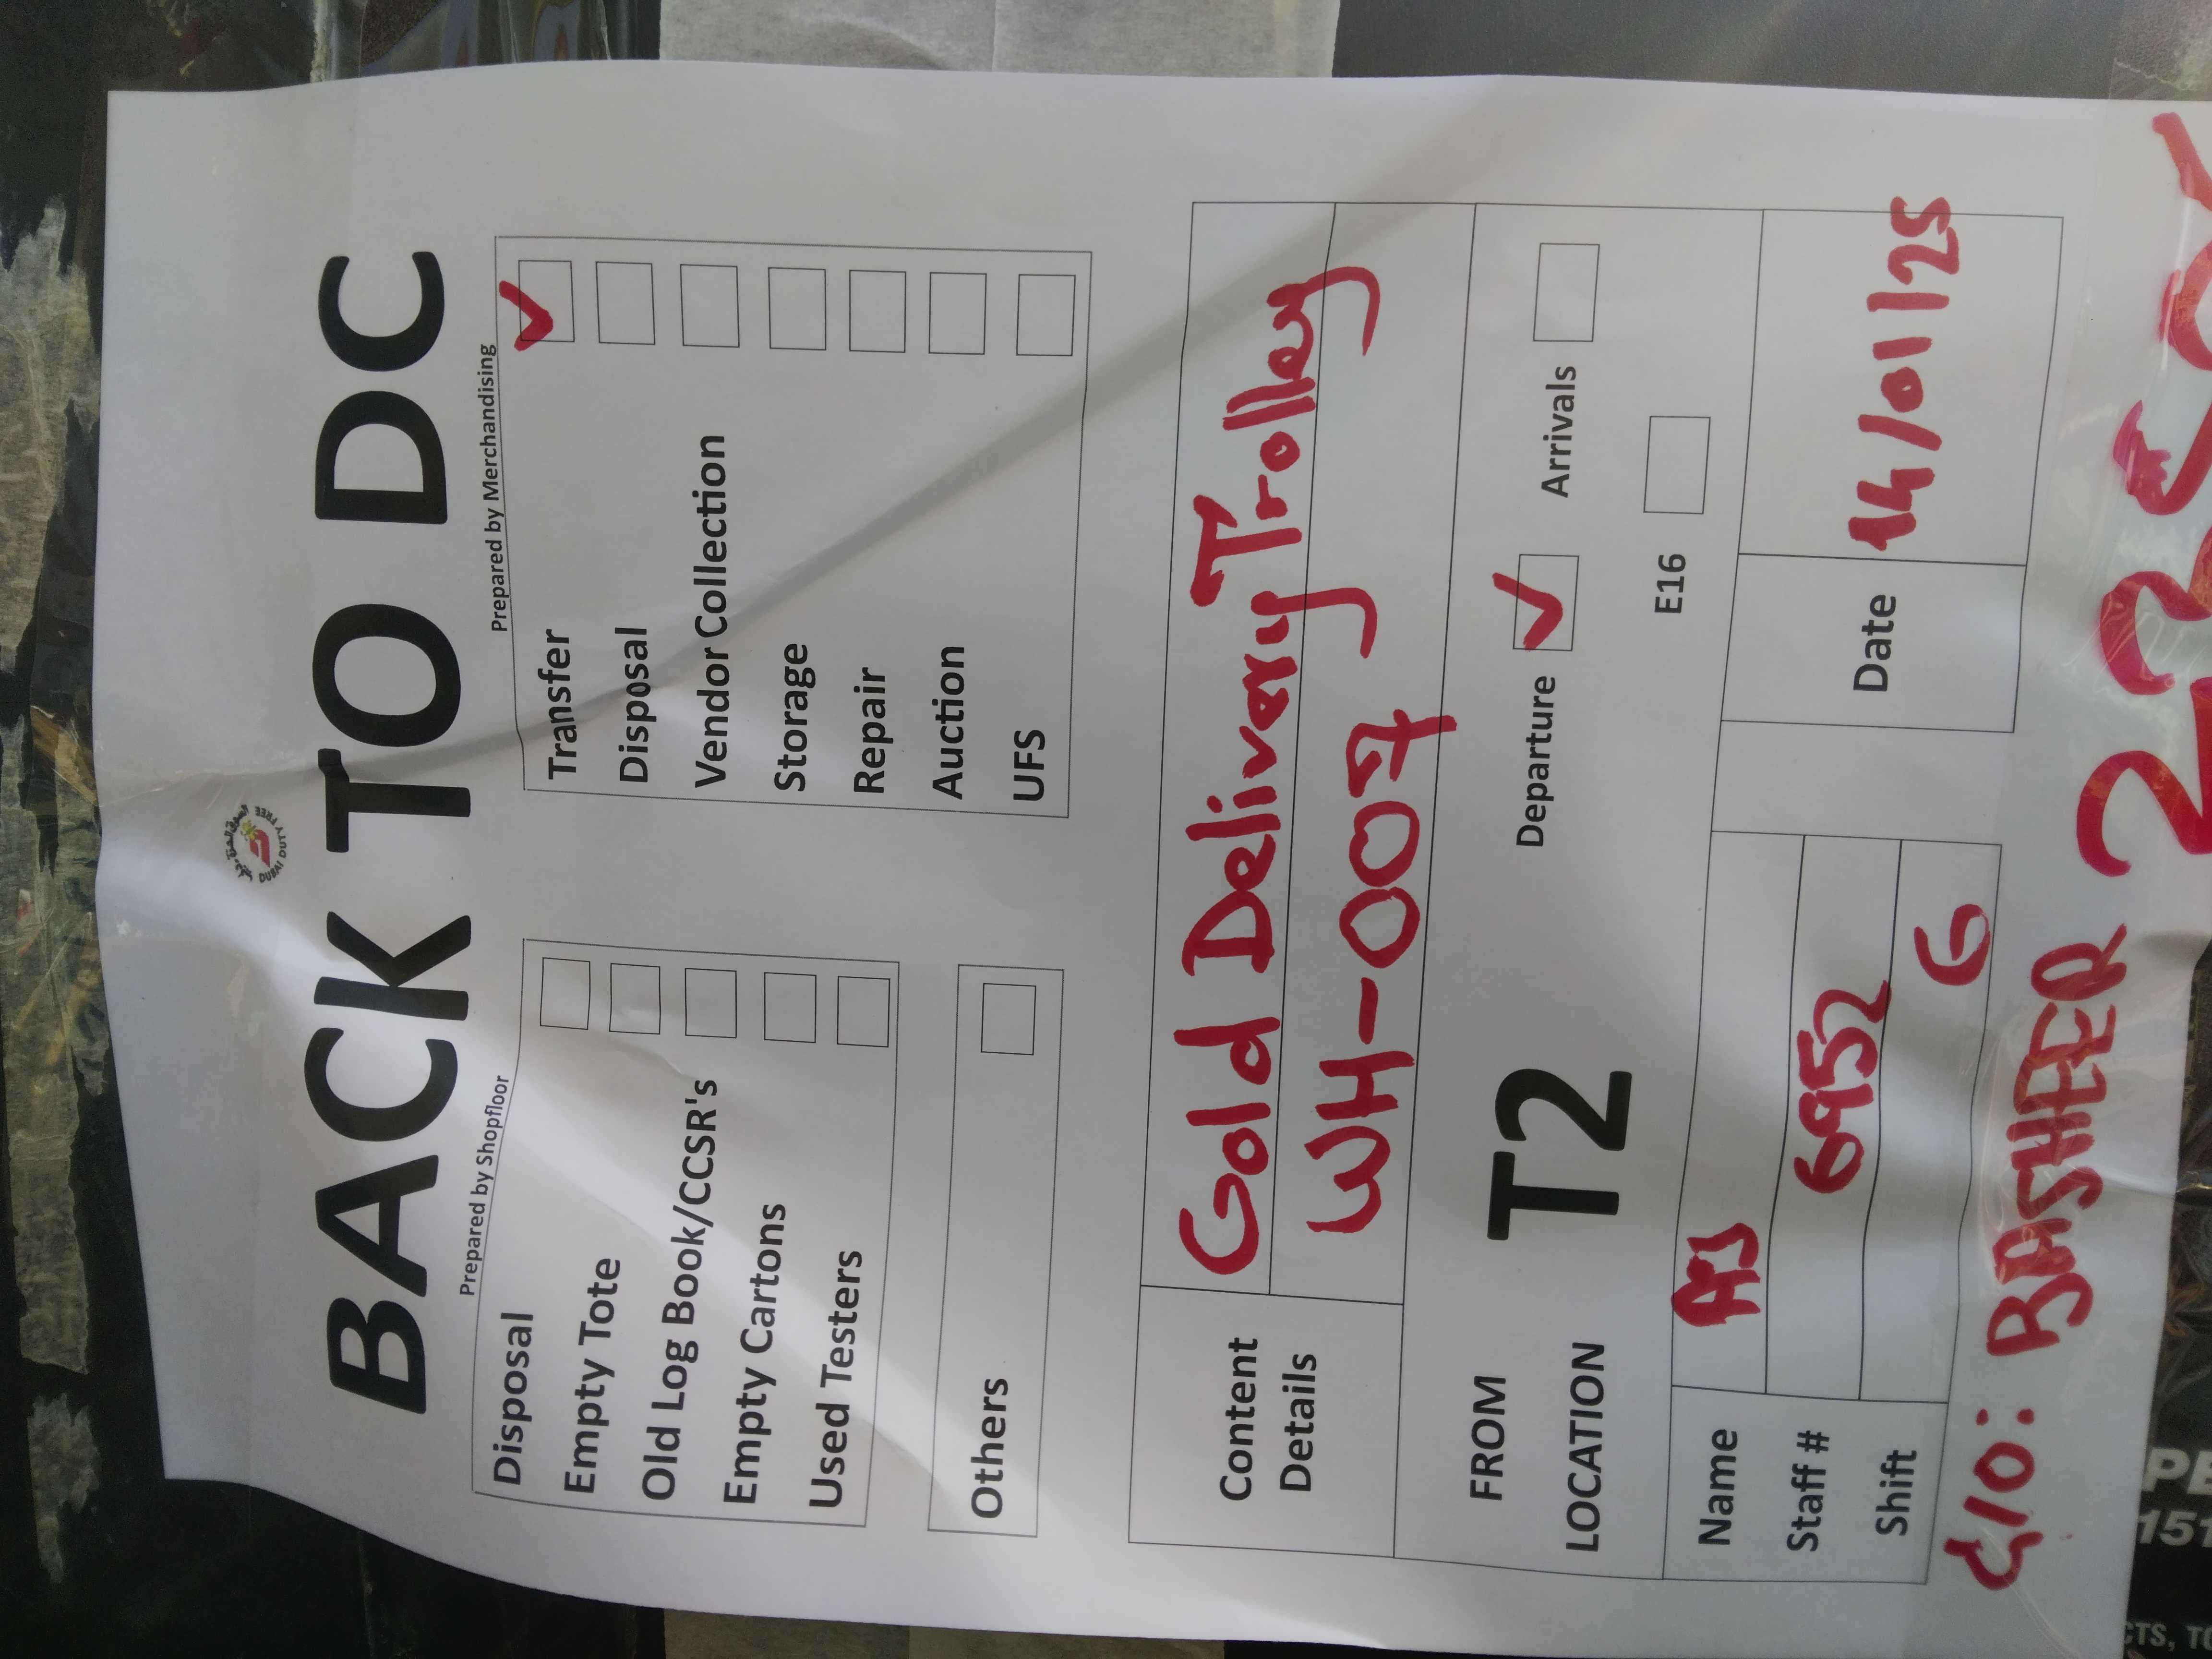 DUBAI DUTY FREE
BACK TO DC
Prepared by Shopfloor
Disposal
Empty Tote
Old Log Book/CCSR's
Empty Cartons
Used Testers
Others
Prepared by Merchandising
Transfer
Disposal
Vendor Collection
Storage
Repair
Auction
UFS
Content Details
Gold Delivery Trolley
WH-007
FROM LOCATION
T2
Departure
Arrivals
E16
Name
Staff # 6952
Shift 6
Date 14/01/25
BASHEER